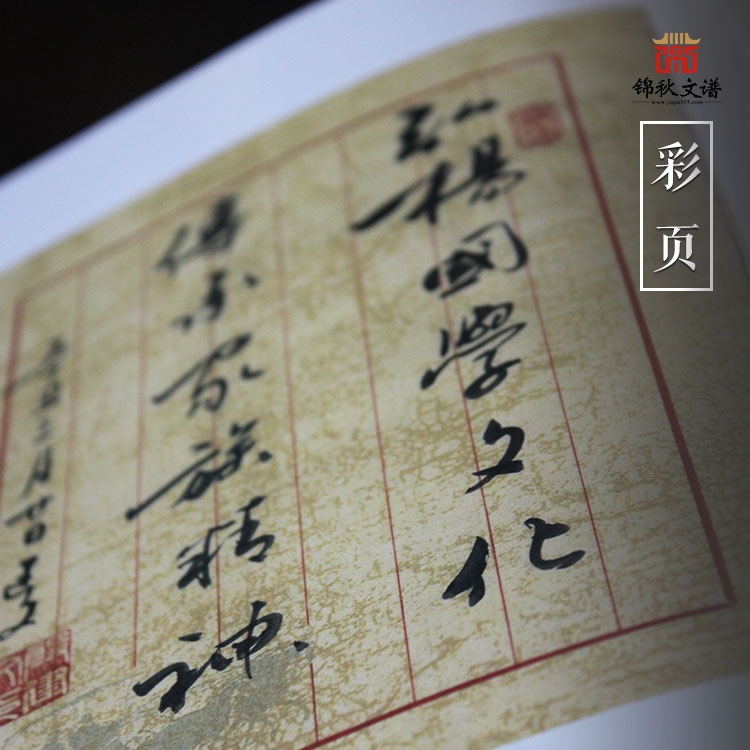 锦秋文谱
www.jiapu315.com
彩页
弘揚國學文化
傳承家族精神
三月